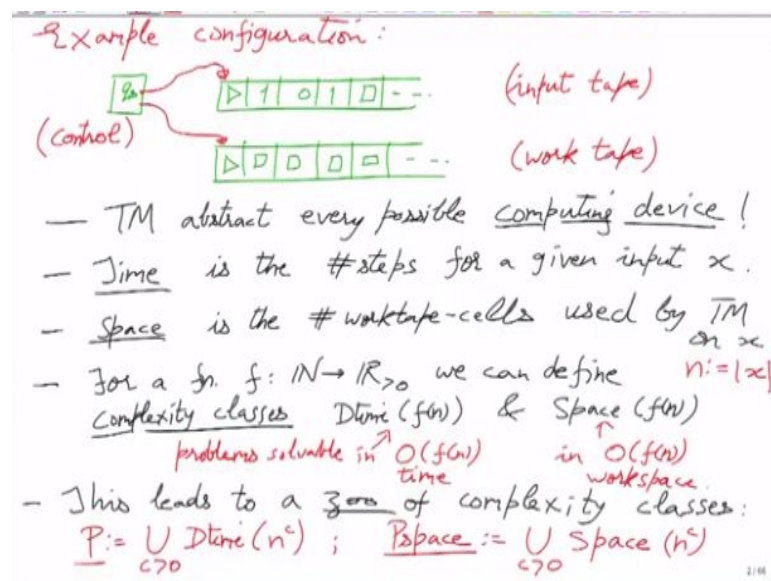 Example configuration:
qs ▷ 1 0 1 □ - - - (input tape)
(control)
▷ □ □ □ □ - - - (work tape)
— TM abstract every possible computing device!
— Time is the #steps for a given input x.
— Space is the #worktape-cells used by TM
on x
— For a fn. f: ℕ→ℝ>0 we can define n:=|x|
complexity classes Dtime(f(n)) & Space(f(n))
problems solvable in O(f(n)) in O(f(n))
time workspace.
- This leads to a zoo of complexity classes:
P:= ∪ Dtime(n^c) ; Pspace:= ∪ Space(n^c)
c>0 c>0
2/66